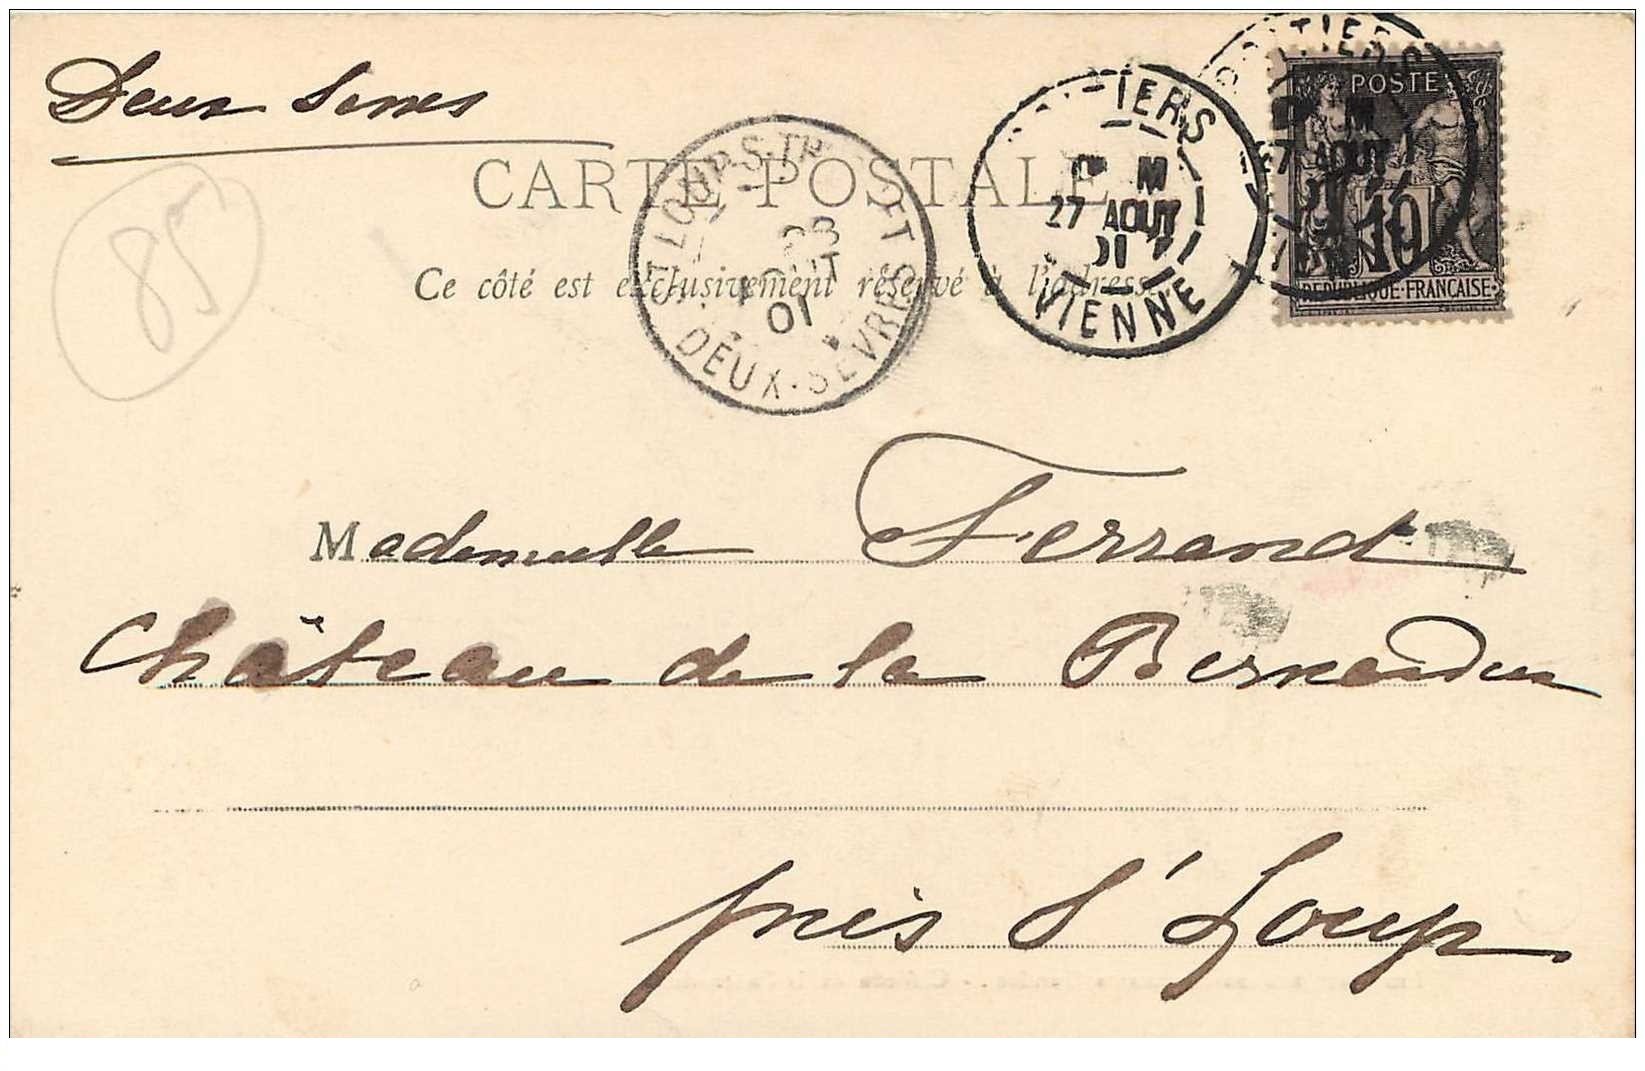 Deux Sèvres
85
CARTE POSTALE
Ce côté est exclusivement réservé à l'adresse
ST LOUP-S-THOUET
28
AOUT
01
DEUX-SEVRES
POITIERS
27 AOUT
01
VIENNE
POITIERS
27 AOUT
01
VIENNE
POSTE
10
REPUBLIQUE·FRANÇAISE
Mademoiselle Ferrand
Château de la Bernardière
près St Loup